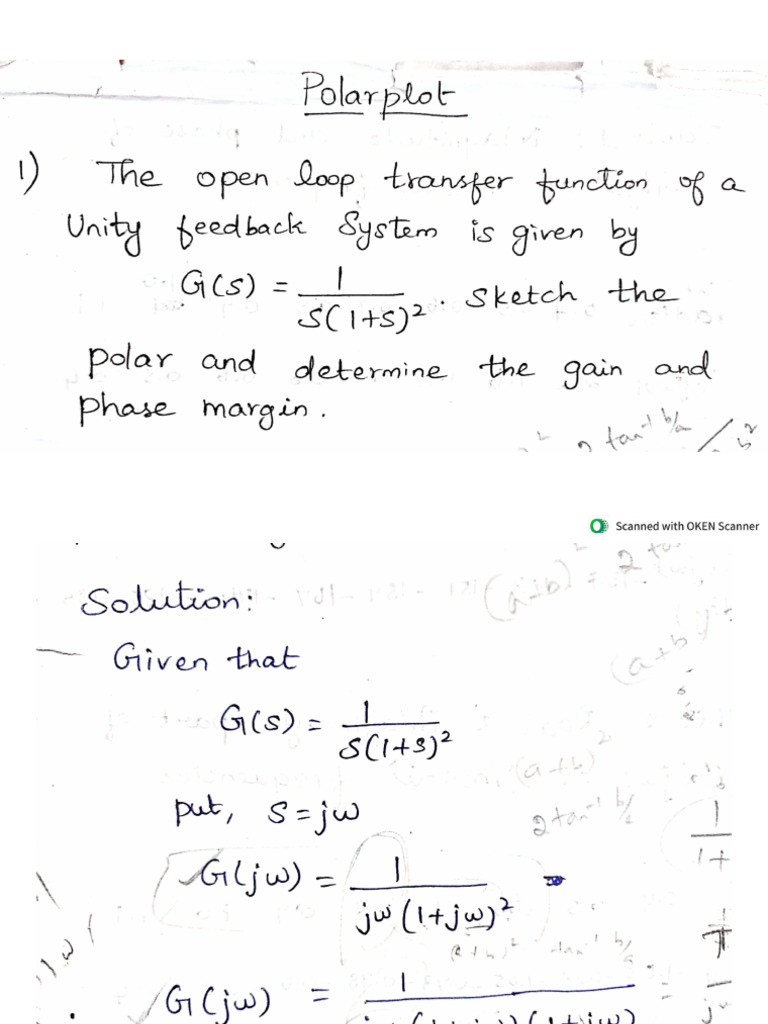 Polarplot
1) The open loop transfer function of a
Unity feedback System is given by
G(s) = 1 / S(1+S)². Sketch the
polar and determine the gain and
phase margin.
2 tan⁻¹ b/a
Scanned with OKEN Scanner
Solution:
(a+b)² = 2
Given that
(a+b)
G(s) = 1 / S(1+s)²
(a+b)²
put, S = jω
2 tan⁻¹ b/a
1
1+
G(jω) = 1 / jω (1+jω)²
G(jω) = 1
(1+jω)